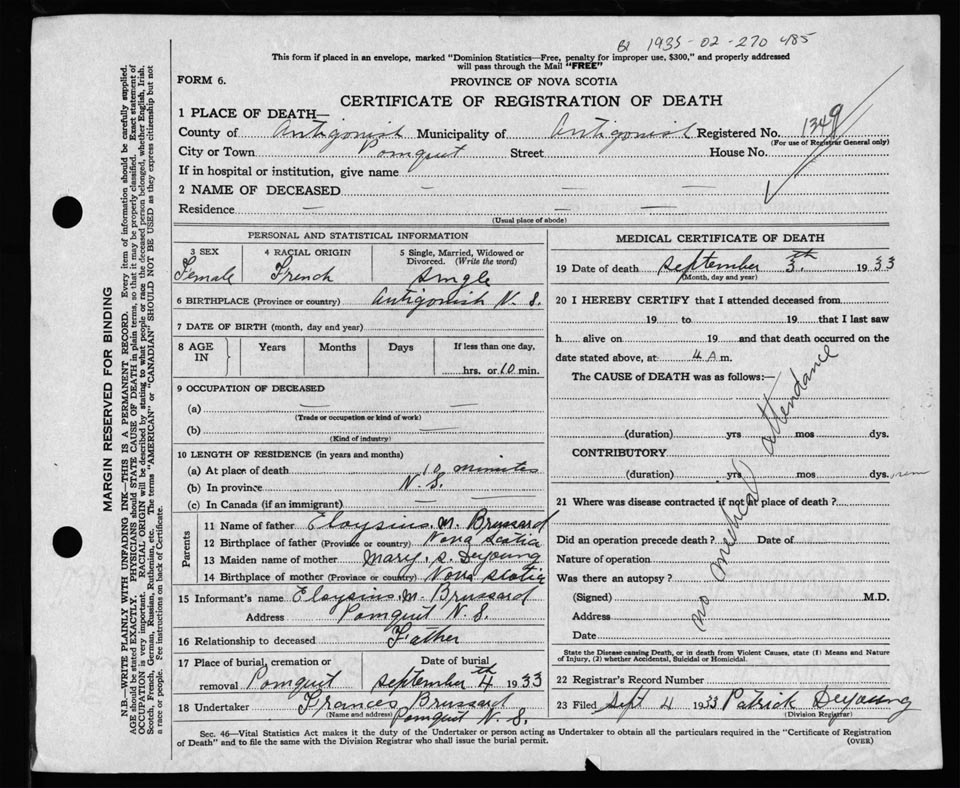 1935-02-270 485
This form if placed in an envelope, marked "Dominion Statistics—Free, penalty for improper use, $300," and properly addressed
will pass through the Mail "FREE"
FORM 6.
PROVINCE OF NOVA SCOTIA
CERTIFICATE OF REGISTRATION OF DEATH
1 PLACE OF DEATH—
County of Antigonish Municipality of Antigonish Registered No. 1349
(For use of Registrar General only)
City or Town Pomquet Street House No.
If in hospital or institution, give name
2 NAME OF DECEASED — — —
Residence — — —
(Usual place of abode)
PERSONAL AND STATISTICAL INFORMATION
3 SEX 4 RACIAL ORIGIN 5 Single, Married, Widowed or
Divorced. (Write the word)
Female French Single
6 BIRTHPLACE (Province or country) Antigonish N. S.
7 DATE OF BIRTH (month, day and year)
8 AGE IN Years Months Days If less than one day,
hrs. or 10 min.
9 OCCUPATION OF DECEASED
(a) — —
(Trade or occupation or kind of work)
(b) —
(Kind of industry)
10 LENGTH OF RESIDENCE (in years and months)
(a) At place of death 10 minutes
(b) In province N. S.
(c) In Canada (if an immigrant) — —
Parents
11 Name of father Eloysius. M. Brussard
12 Birthplace of father (Province or country) Nova Scotia
13 Maiden name of mother Mary. S. Deyoung
14 Birthplace of mother (Province or country) Nova Scotia
15 Informant's name Eloysius. M. Brussard
Address Pomquet N. S.
16 Relationship to deceased Father
17 Place of burial, cremation or
removal Pomquet
Date of burial
September 4th 1933
18 Undertaker Frances Brussard
(Name and address) Pomquet N. S.
MEDICAL CERTIFICATE OF DEATH
19 Date of death September 3.th 1933
(Month, day and year)
20 I HEREBY CERTIFY that I attended deceased from
19 to 19 that I last saw
h alive on 19 and that death occurred on the
date stated above, at 4 A m.
The CAUSE of DEATH was as follows:—
(duration) yrs mos dys.
CONTRIBUTORY
(duration) yrs mos dys.
no medical attendance
21 Where was disease contracted if not at place of death?
Did an operation precede death? Date of
Nature of operation
Was there an autopsy?
(Signed) M.D.
Address
Date
State the Disease causing Death, or in death from Violent Causes, state (1) Means and Nature
of Injury, (2) whether Accidental, Suicidal or Homicidal.
22 Registrar's Record Number
23 Filed Sept 4 1933 Patrick Deyoung
(Division Registrar)
Sec. 46—Vital Statistics Act makes it the duty of the Undertaker or person acting as Undertaker to obtain all the particulars required in the "Certificate of Registration
of Death" and to file the same with the Division Registrar who shall issue the burial permit.
(OVER)
MARGIN RESERVED FOR BINDING
N.B.—WRITE PLAINLY WITH UNFADING INK—THIS IS A PERMANENT RECORD. Every item of information should be carefully supplied.
AGE should be stated EXACTLY. PHYSICIANS should STATE CAUSE OF DEATH in plain terms, so that it may be properly classified. Exact statement of
OCCUPATION is very important. RACIAL ORIGIN will be described by stating to what people or race the deceased person belonged, whether English, Irish,
Scotch, French, German, Russian, Ruthenian, etc. The terms "AMERICAN" or "CANADIAN" SHOULD NOT BE USED as they express citizenship but not
a race or people. Fee instructions on back of Certificate.